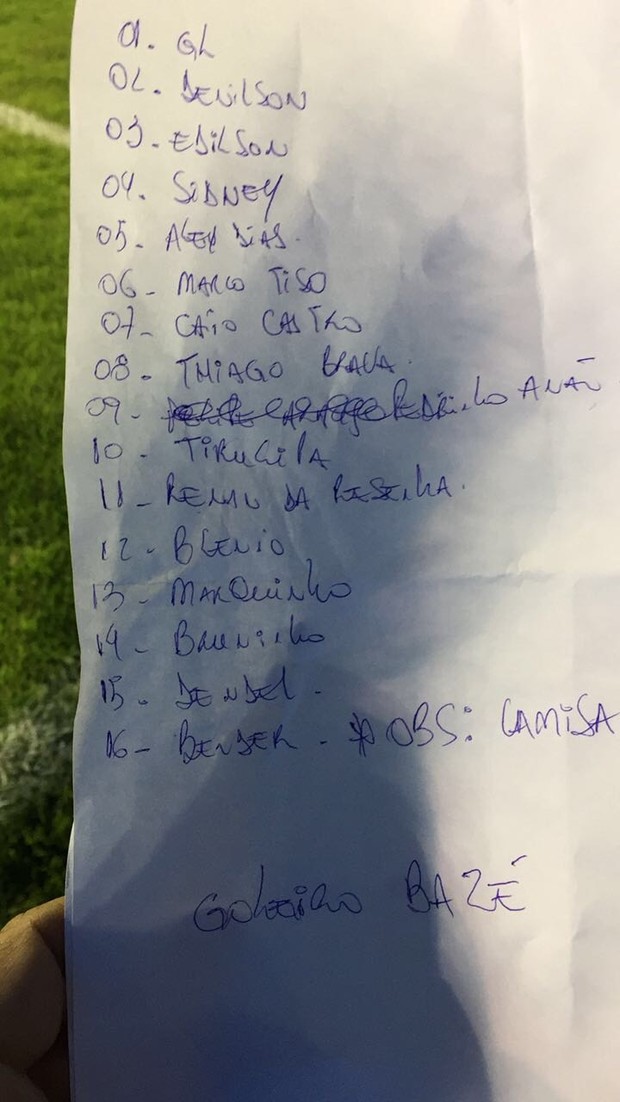 01. GL
02. DENILSON
03. EDILSON
04. SIDNEY
05- ALEX DIAS.
06- MARCO TISO
07- CAIO CASTRO
08- THIAGO BRAVA.
09- PEDRINHO ANÃO
10- TIRULIPA
11- RENAN DA RESENHA.
12- BLENIO
13- MARQUINHO
14- BRUNINHO
15- DENDEL.
16- BENDER - * OBS: CAMISA
GOLEIRO BAZÉ